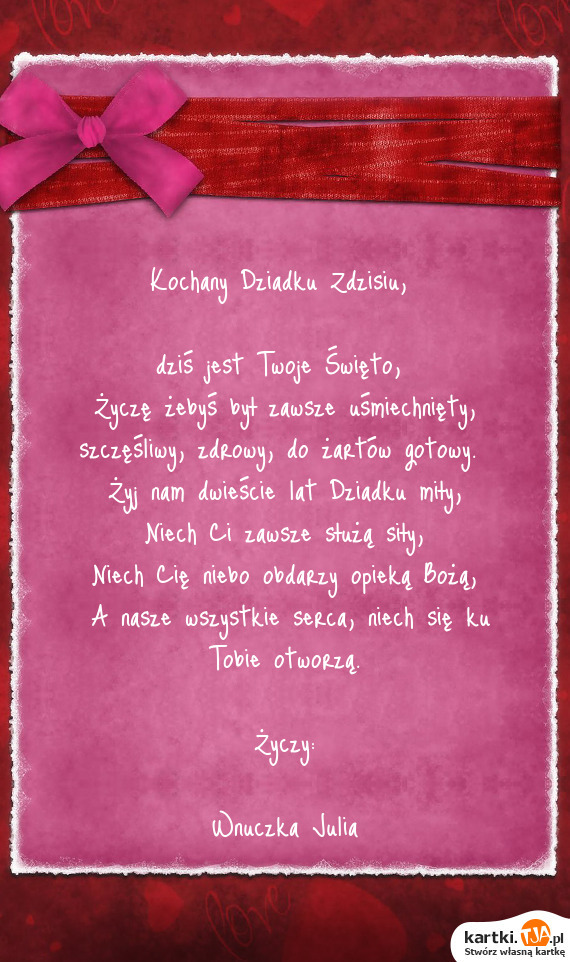 love
love
Kochany Dziadku Zdzisiu,
dziś jest Twoje Święto,
Życzę żebyś był zawsze uśmiechnięty,
szczęśliwy, zdrowy, do żartów gotowy.
Żyj nam dwieście lat Dziadku miły,
Niech Ci zawsze służą siły,
Niech Cię niebo obdarzy opieką Bożą,
A nasze wszystkie serca, niech się ku
Tobie otworzą.
Życzy:
Wnuczka Julia
love
kartki.TJA.pl
Stwórz własną kartkę